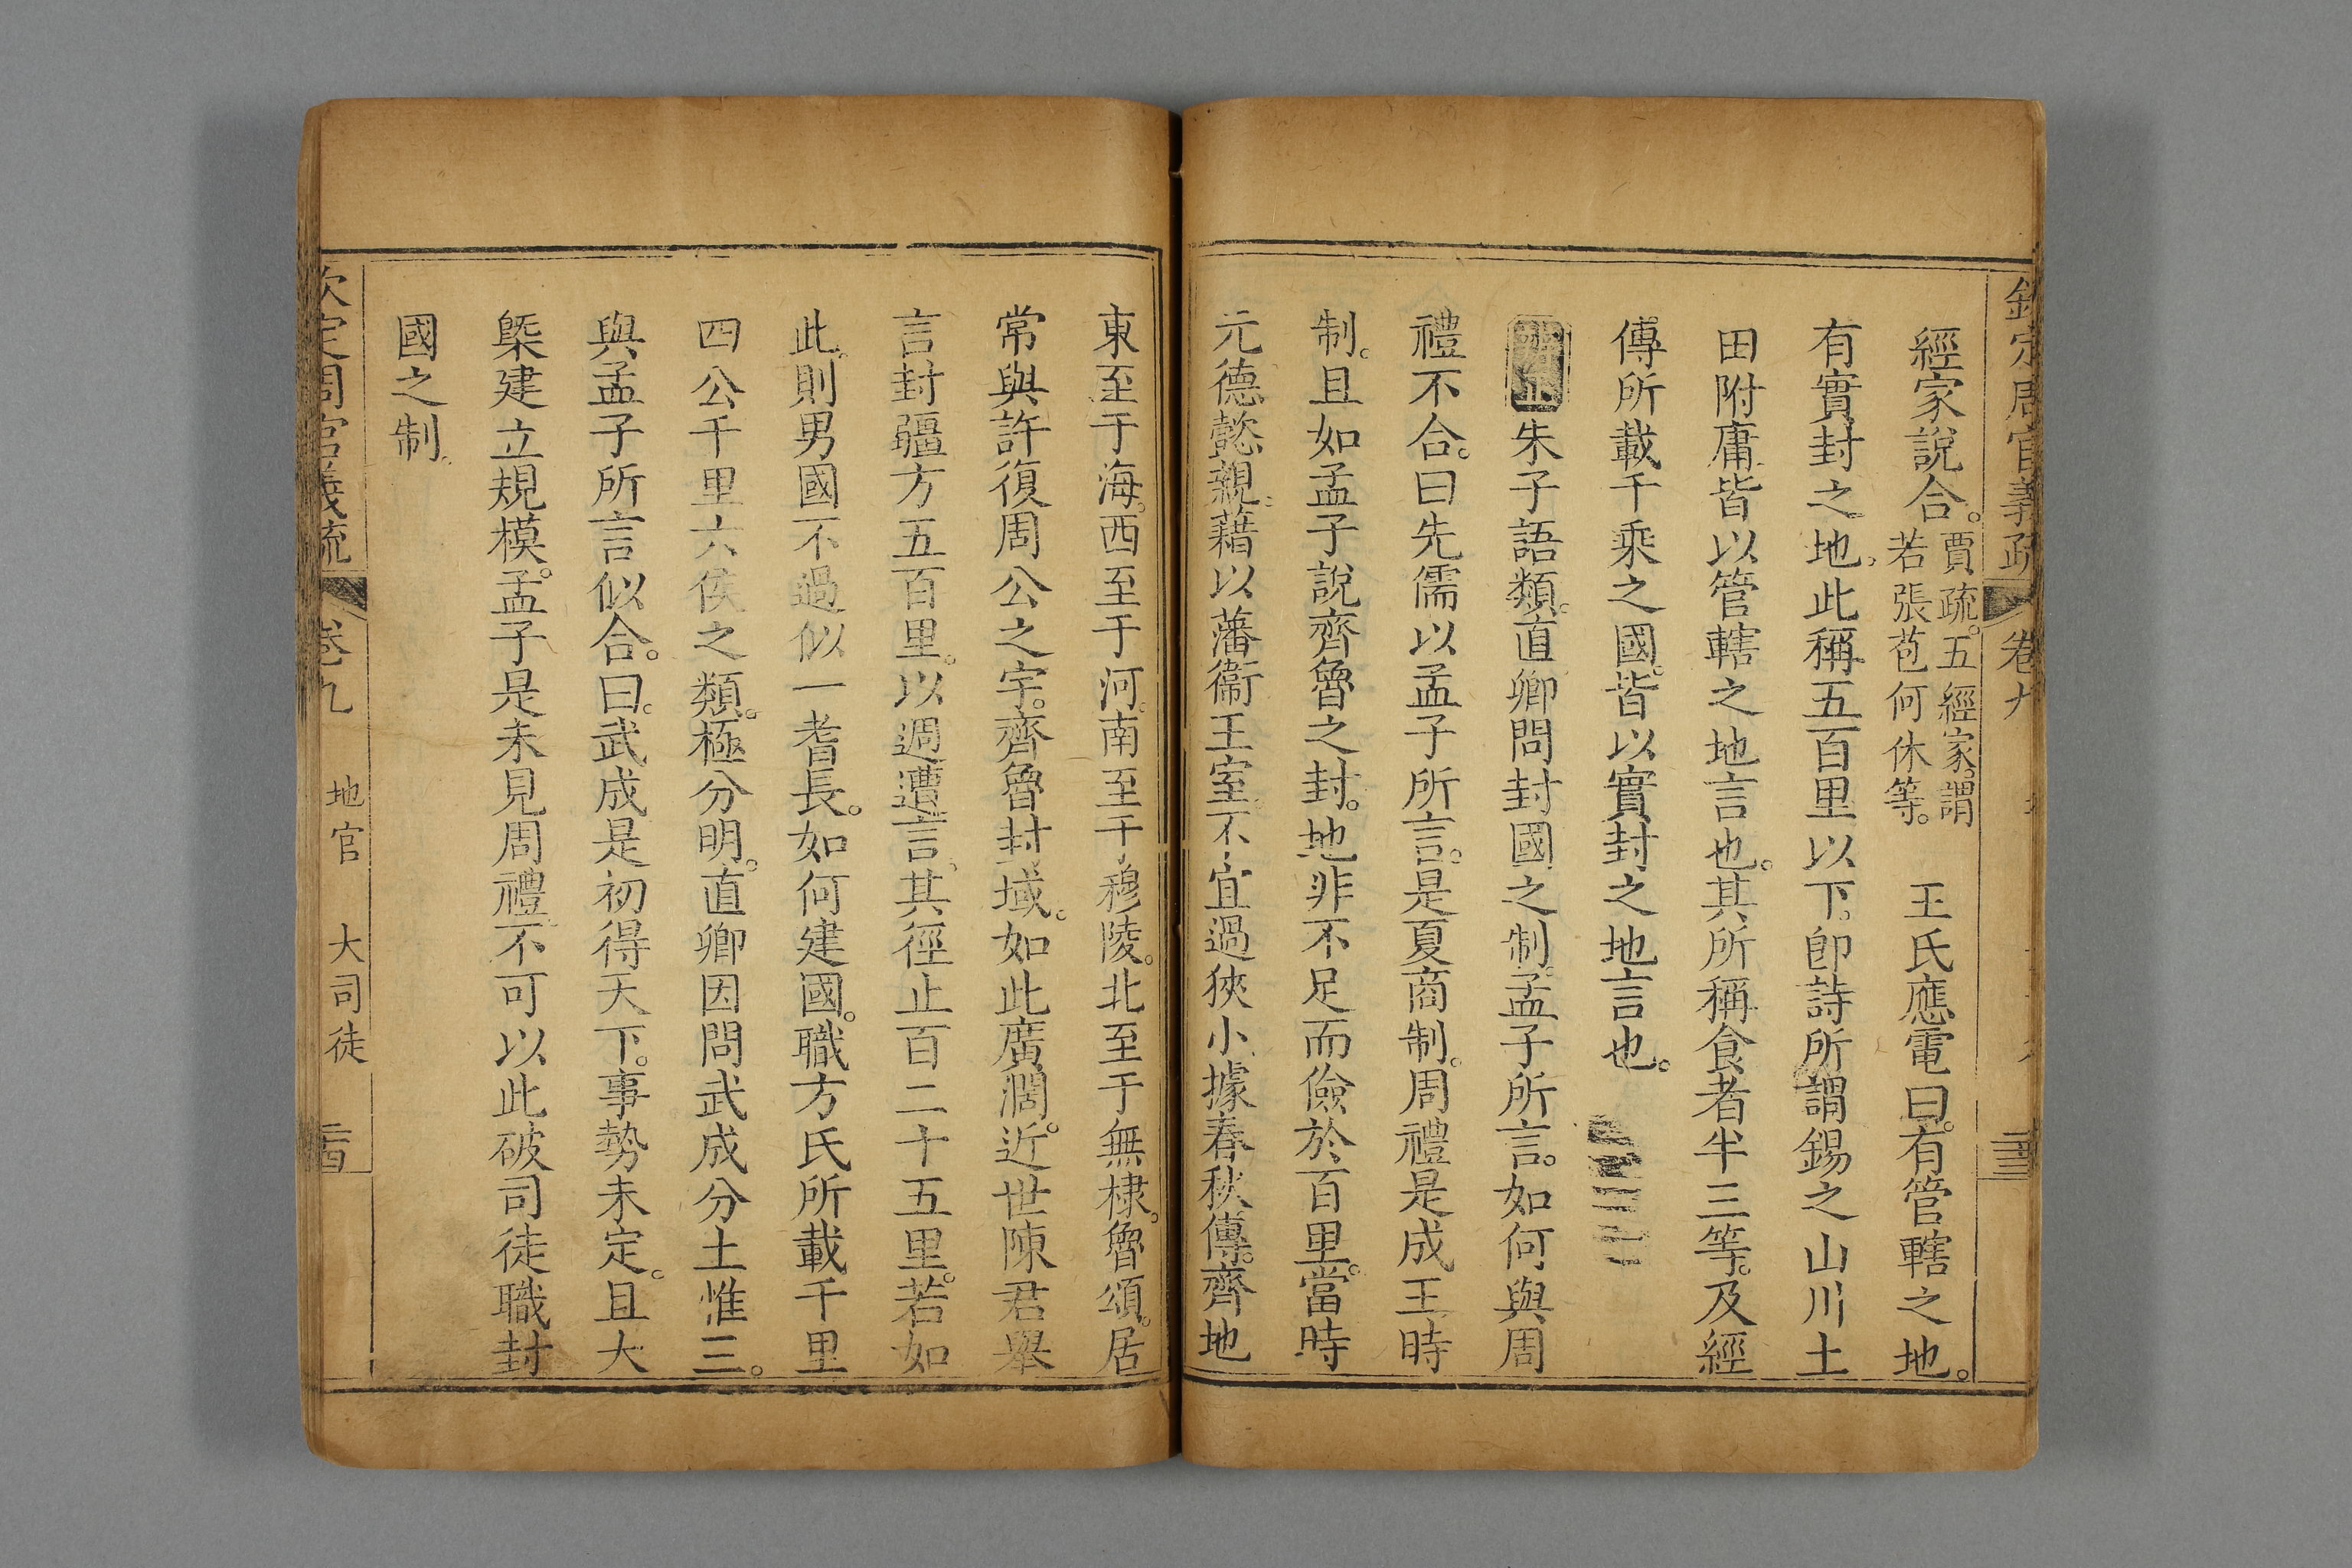 欽定周官義疏 卷九
經家說合。賈疏。五經家。謂若張苞何休等。 王氏應電曰。有管轄之地。
有實封之地。此稱五百里以下。卽詩所謂錫之山川土
田附庸。皆以管轄之地言也。其所稱食者半三等。及經
傳所載千乘之國。皆以實封之地言也。
朱子語類。直卿問封國之制。孟子所言。如何與周
禮不合。曰先儒以孟子所言。是夏商制。周禮是成王時
制。且如孟子說齊魯之封。地非不足而儉於百里。當時
元德懿親。藉以藩衞王室。不宜過狹小。據春秋傳。齊地
東至于海。西至于河。南至于穆陵。北至于無棣。魯頌。居
常與許復周公之宇。齊魯封域。如此廣濶。近世陳君舉
言封疆方五百里。以週遭言。其徑止百二十五里。若如
此。則男國不過似一耆長。如何建國。職方氏所載千里
四公千里六侯之類。極分明。直卿因問武成分土惟三。
與孟子所言似合。曰。武成是初得天下。事勢未定。且大
槩建立規模。孟子是未見周禮。不可以此破司徒職封
國之制。
欽定周官義疏 卷九 地官 大司徒